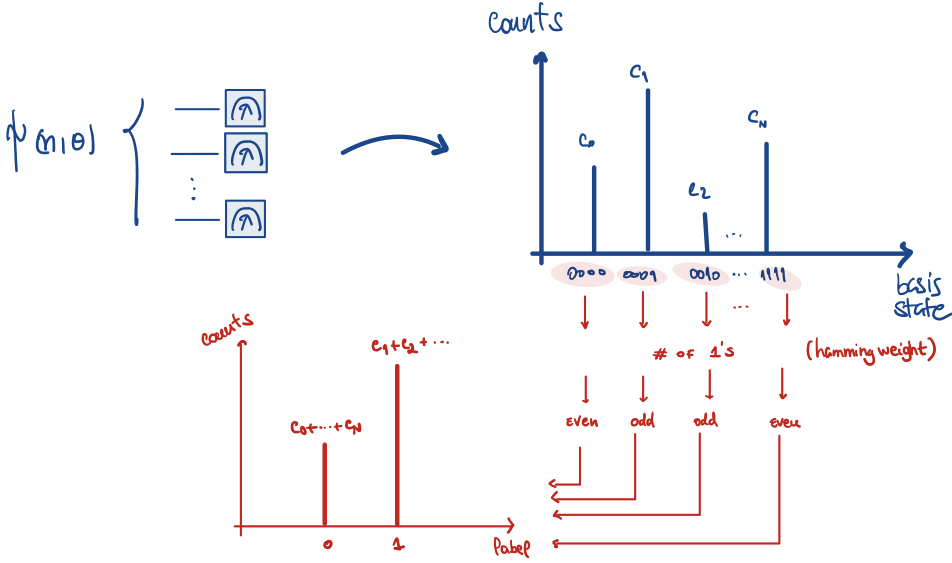 counts
ψ(x|θ)
C₀
C₁
C₂
...
C_N
0000 0001 0010 ... 1111
basis
state
...
# of 1's
(hamming weight)
even odd odd even
counts
C₀+...+C_N
C₁+C₂+...
0 1
label